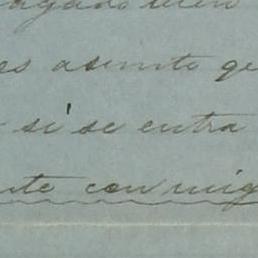 agado bien
es asunto qe
si se entra
nte conmig